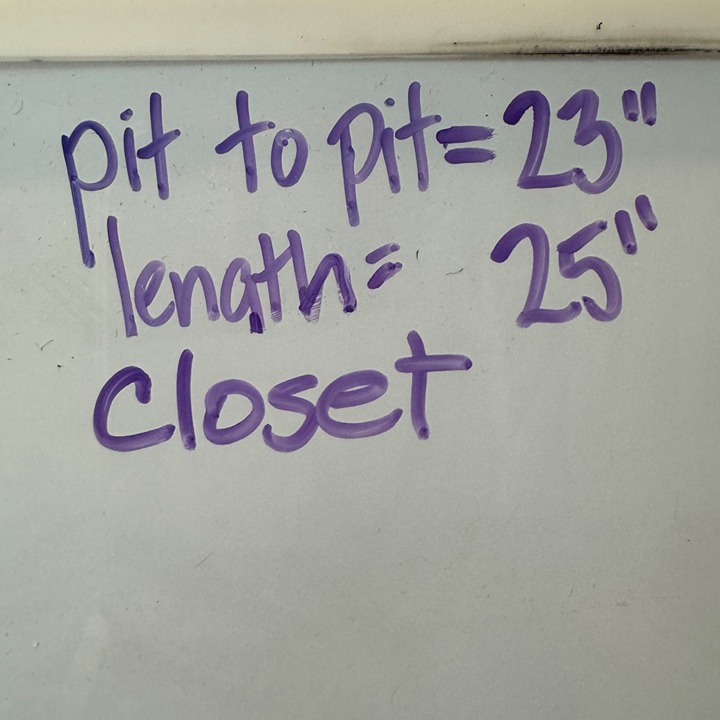 pit to pit= 23"
length= 25"
closet